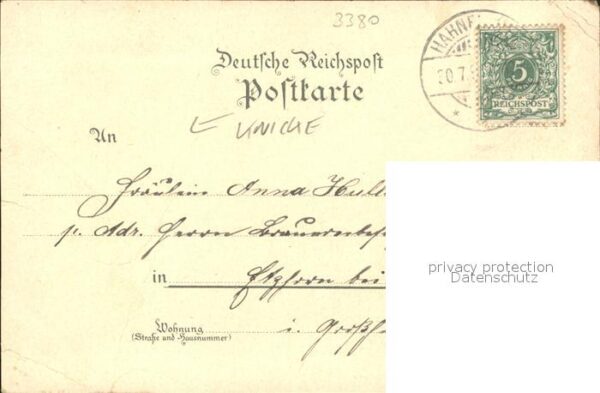 3380
HAHNE
20.7.
5
REICHSPOST
Deutsche Reichspost
Postkarte
KNICKE
An
Fräulein Anna Hul
p. Adr. Herrn Brauereibes
in Etzhorn bei
Wohnung
(Straße und Hausnummer)
i. Großh
privacy protection
Datenschutz